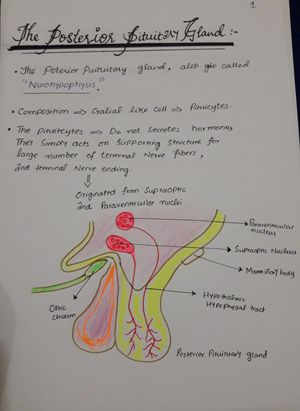 1
The Posterior Pituitary Gland :-
• The Poterior Puitutary gland, also glo called
"Nurohypophysis".
• Composition ⇒ Glalial like cell ⇒ Pituicytes.
• The pituitcytes ⇒ Do not Secretes hormones
They Simply acts on supporting structure for
large number of terminal Nerve fibers,
and terminal Nerve ending.
⇓
Originated from Supraoptic
and Paraventricular nuclei
Paraventricular
nucleus
Supraoptic Nucleus
Mammillary body
Hypothalmic
Hypophysial tract
Optic
Chiasm
Posterior Pituitary gland